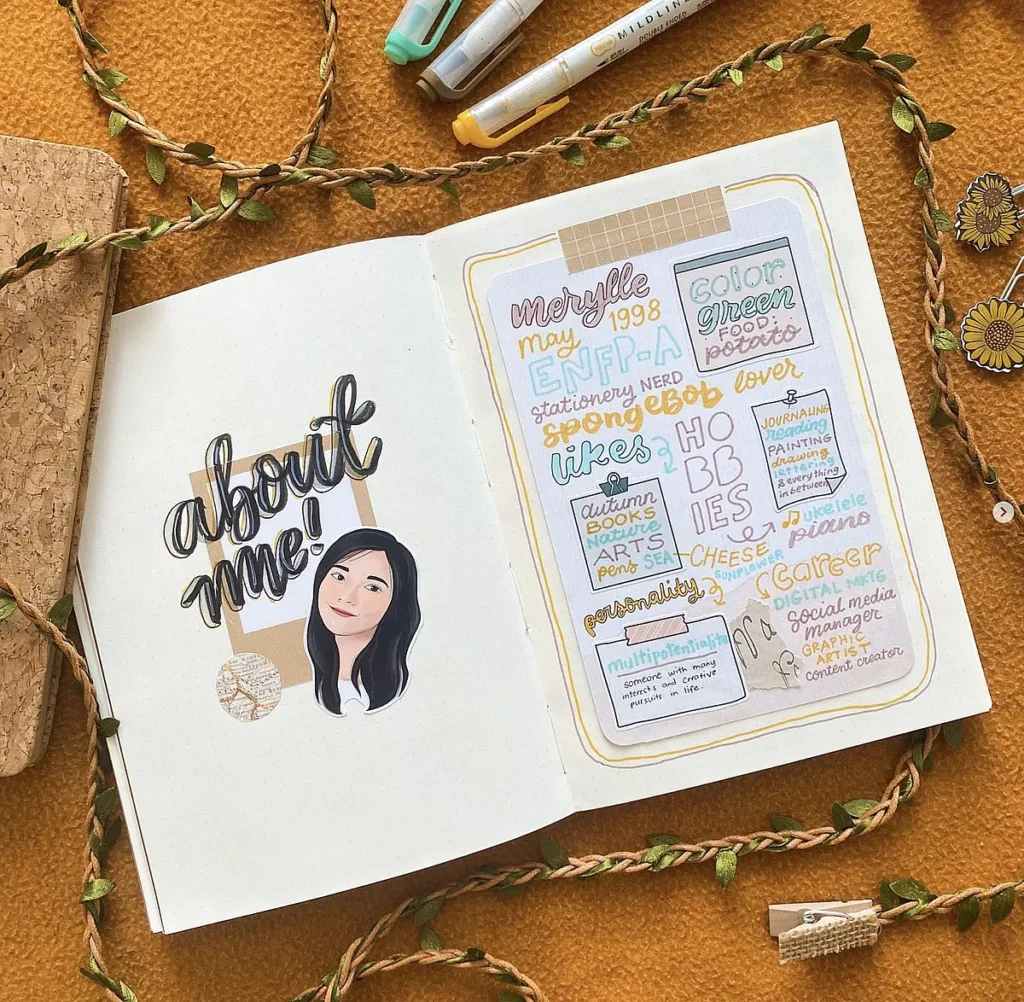 MILDLINER
DOUBLE ENDED
about
me!
merylle
may 1998
ENFP-A
stationery NERD
spongeBob lover
likes
color
green
FOOD:
potato
HO
BB
IES
JOURNALING
reading
PAINTING
drawing
lettering
& everything
in between
ukelele
piano
autumn
BOOKS
Nature
ARTS
pens SEA
CHEESE
SUNFLOWER
personality
multipotentialite
someone with many
interests and creative
pursuits in life.
career
DIGITAL MKTG
social media
manager
GRAPHIC
ARTIST
content creator